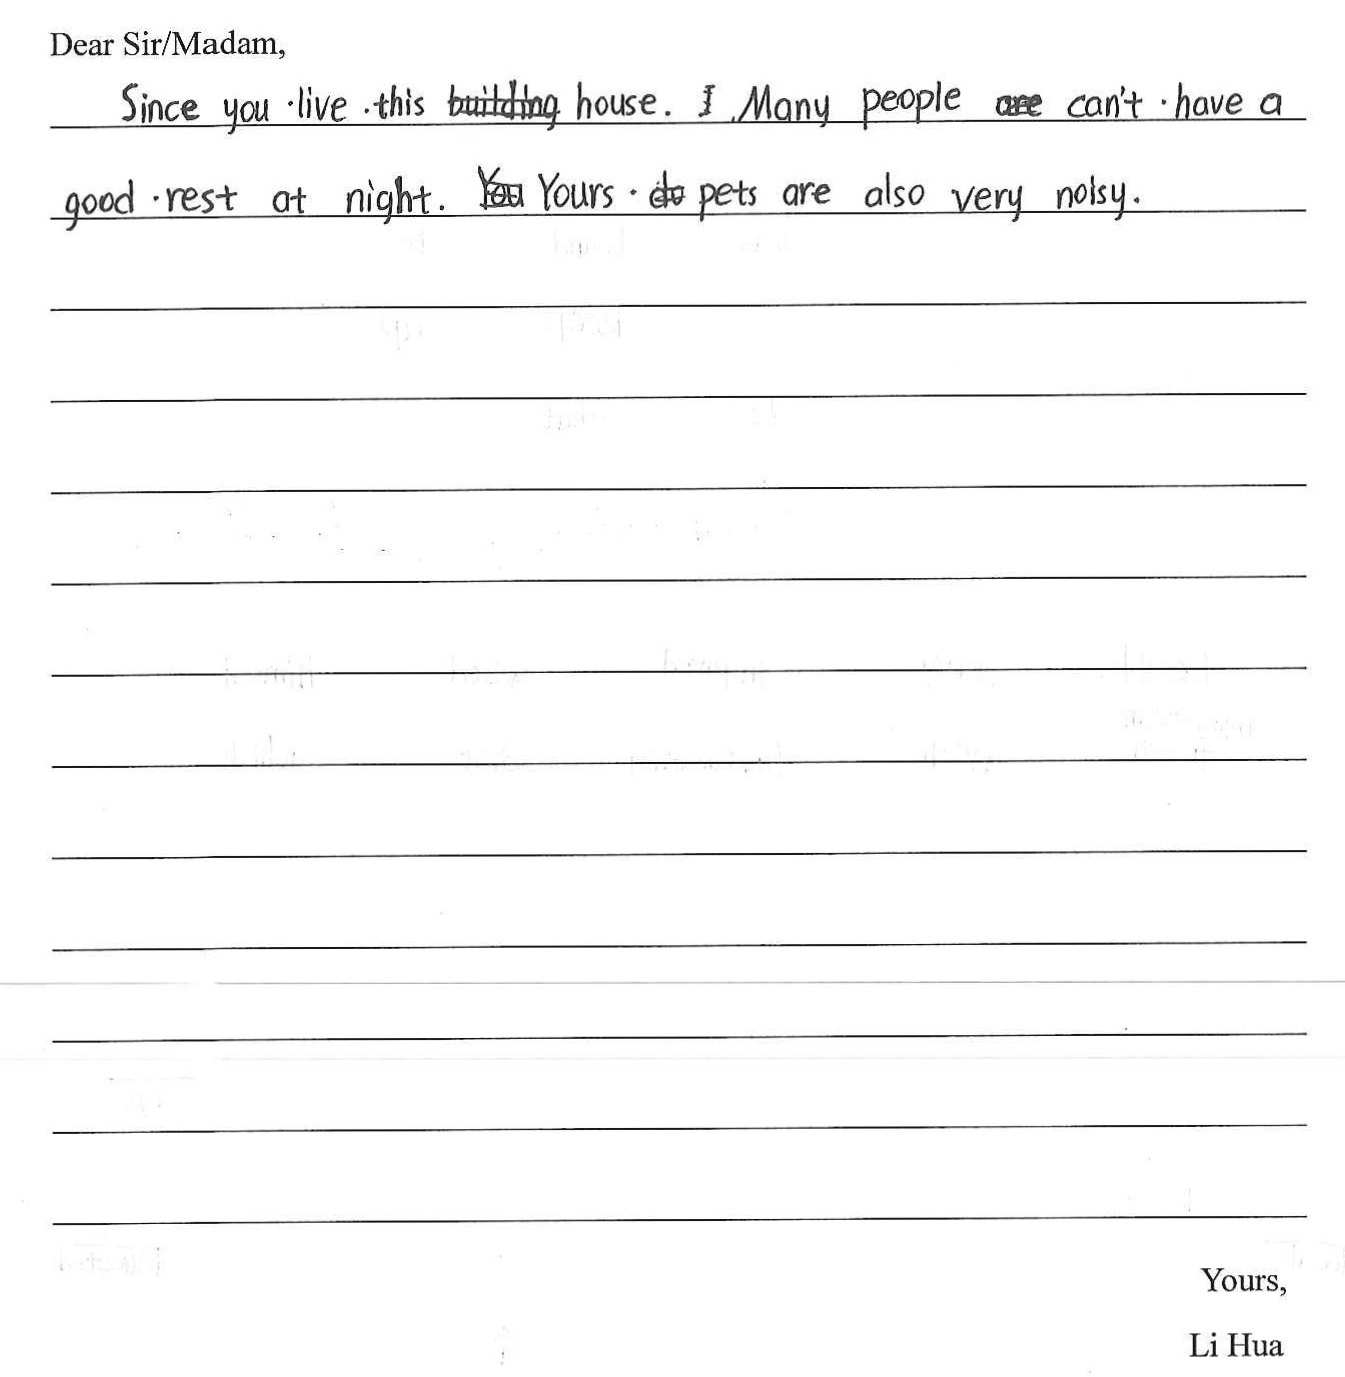 Dear Sir/Madam,
Since you live this house. Many people can't have a
good rest at night. Yours pets are also very noisy.
Yours,
Li Hua